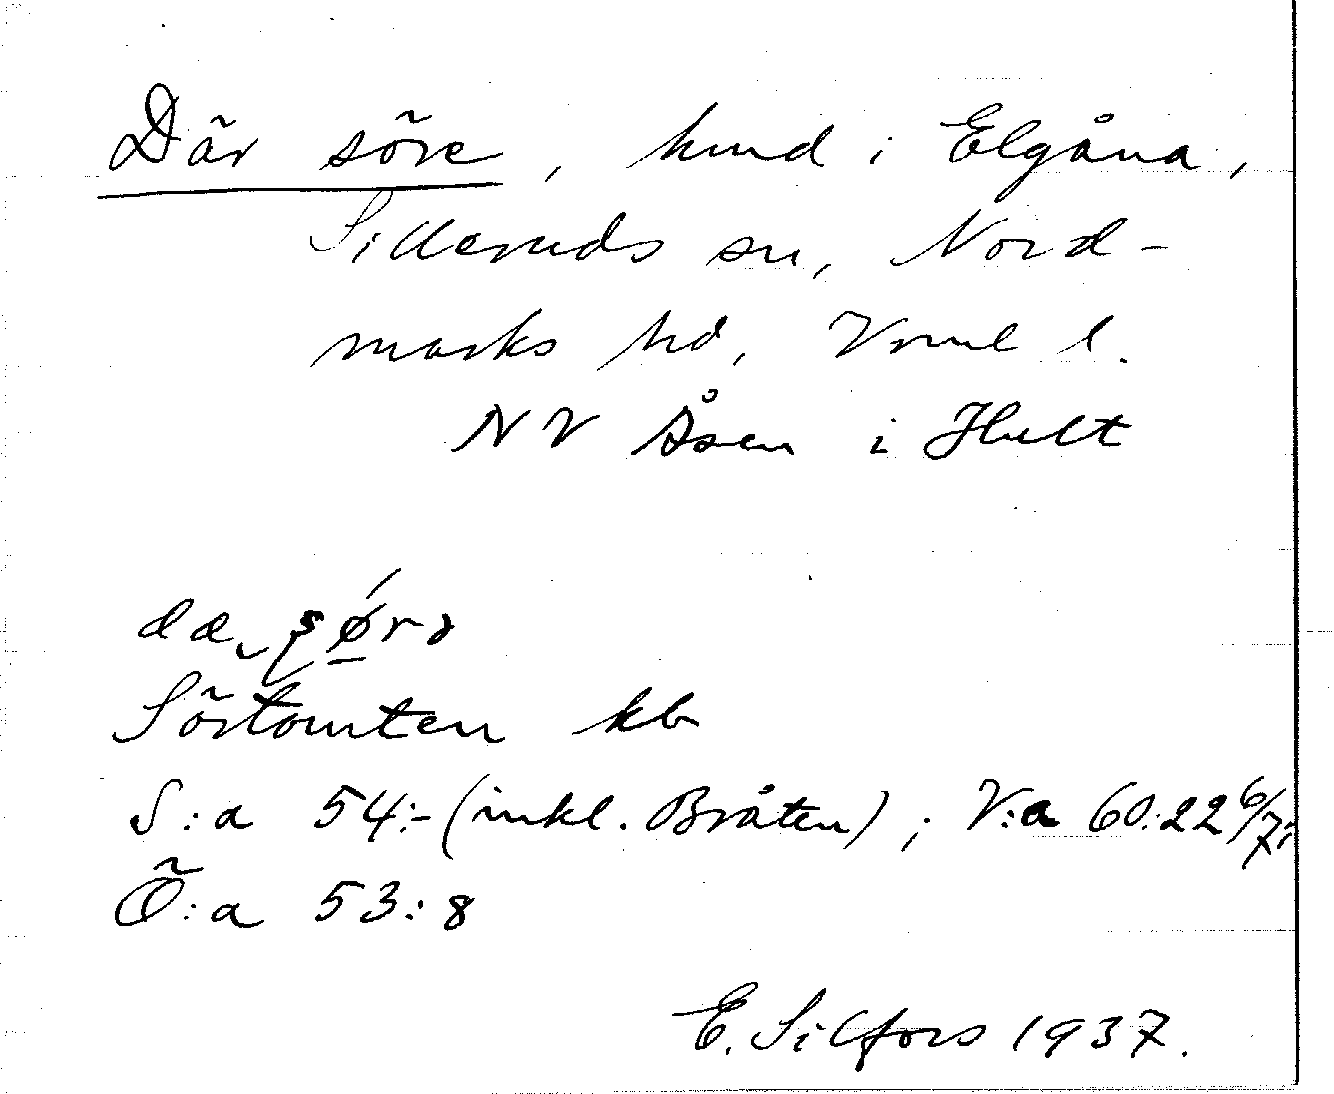 Där söre, hmd i Elgåna,
Silleruds sn, Nord-
marks hd, Vrml l.
NV Åsen i Hult
Sörtomten kb
S:a 54:- (inkl. Bråten); V:a 60:22 6/7;
Ö:a 53:8
E. Silfors 1937.